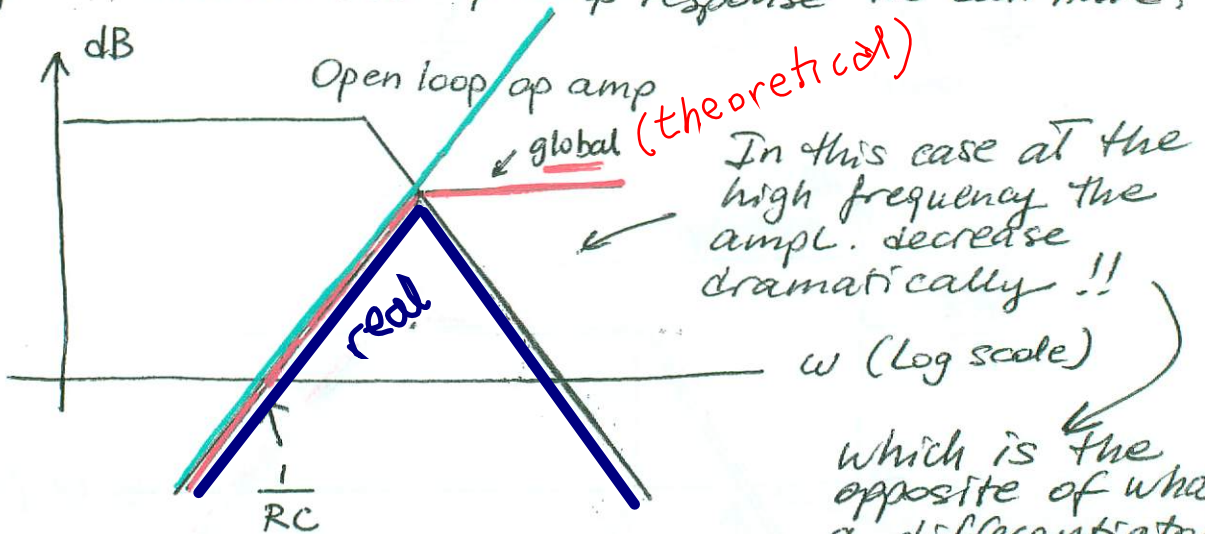 response
dB
Open loop op amp
global (theoretical)
In this case at the
high frequency the
ampl. decrease
dramatically !!
real
ω (Log scale)
1
RC
which is the
opposite of wha
a differentiato